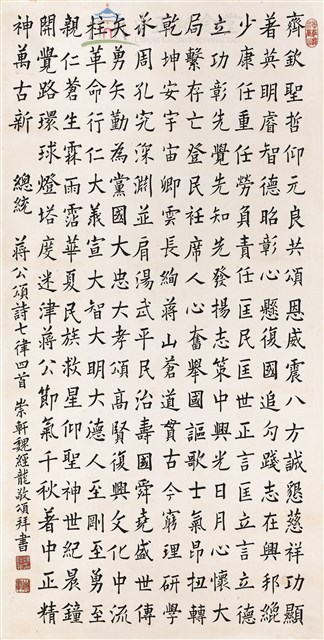 齊欽聖哲仰元良共頌恩威震八方誠懇慈祥功顯
著英明睿智德昭彰心懸復國追勾踐志在興邦緬
少康任重任勞負責任匡民匡世正言匡立言立德
立功彰先覺先知先發揚志策中興光日月心懷大
局繫存亡登民衽席人心奮舉國謳歌士氣昂扭轉
乾坤安宇宙卿雲長絢蔣山蒼道貫古今窮理研學
承周孔究深淵並肩湯武平民治壽國舜堯盛世傳
大勇矢勤為黨國大忠大孝頌高賢復興文化中流
柱革命行仁大義宣大智大明大德人至剛至勇至
親仁蒼生霖雨霑華夏民族救星仰聖神世紀晨鐘
開覺路環球燈塔度迷津蔣公節氣千秋著中正精
神萬古新 總統 蔣公頌詩七律四首 崇軒魏經龍敬頌拜書